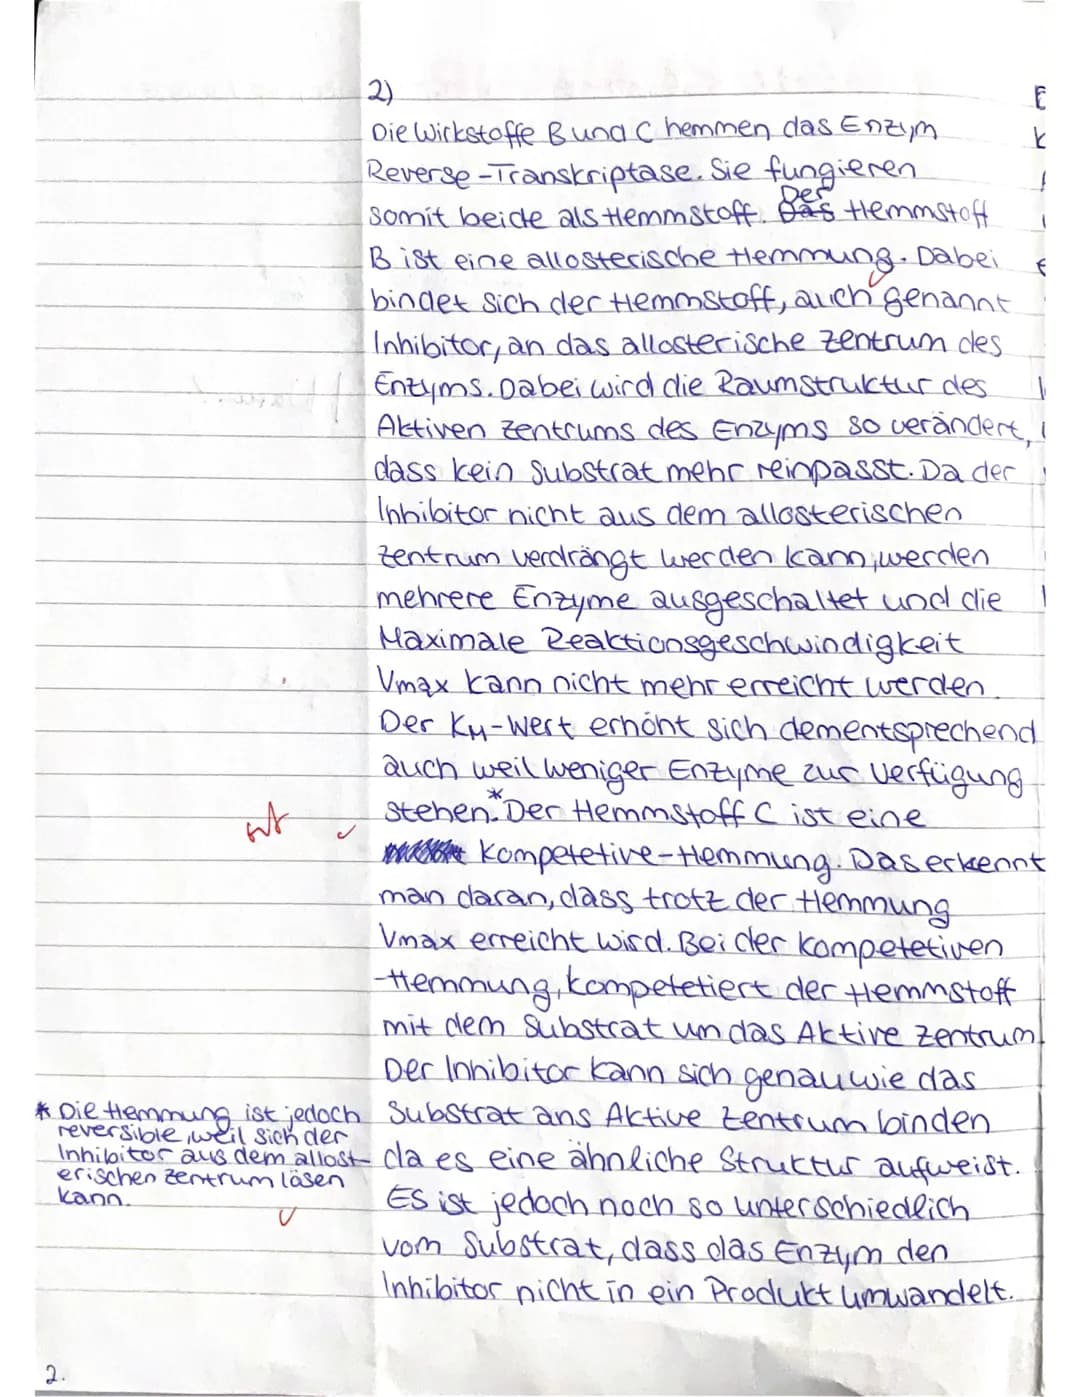 2)
Die Wirkstoffe B und C hemmen das Enzym
Reverse-Transkriptase. Sie fungieren
somit beide als Hemmstoff. Der Hemmstoff
B ist eine allosterische Hemmung. Dabei
bindet sich der Hemmstoff, auch genannt
Inhibitor, an das allosterische Zentrum des
Enzyms. Dabei wird die Raumstruktur des
Aktiven Zentrums des Enzyms so verändert,
dass kein Substrat mehr reinpasst. Da der
Inhibitor nicht aus dem allosterischen
Zentrum verdrängt werden kann, werden
mehrere Enzyme ausgeschaltet und die
Maximale Reaktionsgeschwindigkeit
Vmax kann nicht mehr erreicht werden.
Der KM-Wert erhöht sich dementsprechend
auch weil weniger Enzyme zur Verfügung
stehen.* Der Hemmstoff C ist eine
Kompetetive-Hemmung. Das erkennt
man daran, dass trotz der Hemmung
Vmax erreicht wird. Bei der kompetetiven
-Hemmung, kompetetiert der Hemmstoff
mit dem Substrat um das Aktive Zentrum.
Der Inhibitor kann sich genau wie das
Substrat ans Aktive Zentrum binden
da es eine ähnliche Struktur aufweist.
Es ist jedoch noch so unterschiedlich
vom Substrat, dass das Enzym den
Inhibitor nicht in ein Produkt umwandelt.
* Die Hemmung ist jedoch
reversible, weil sich der
Inhibitor aus dem allost-
erischen Zentrum läsen
kann.
2.